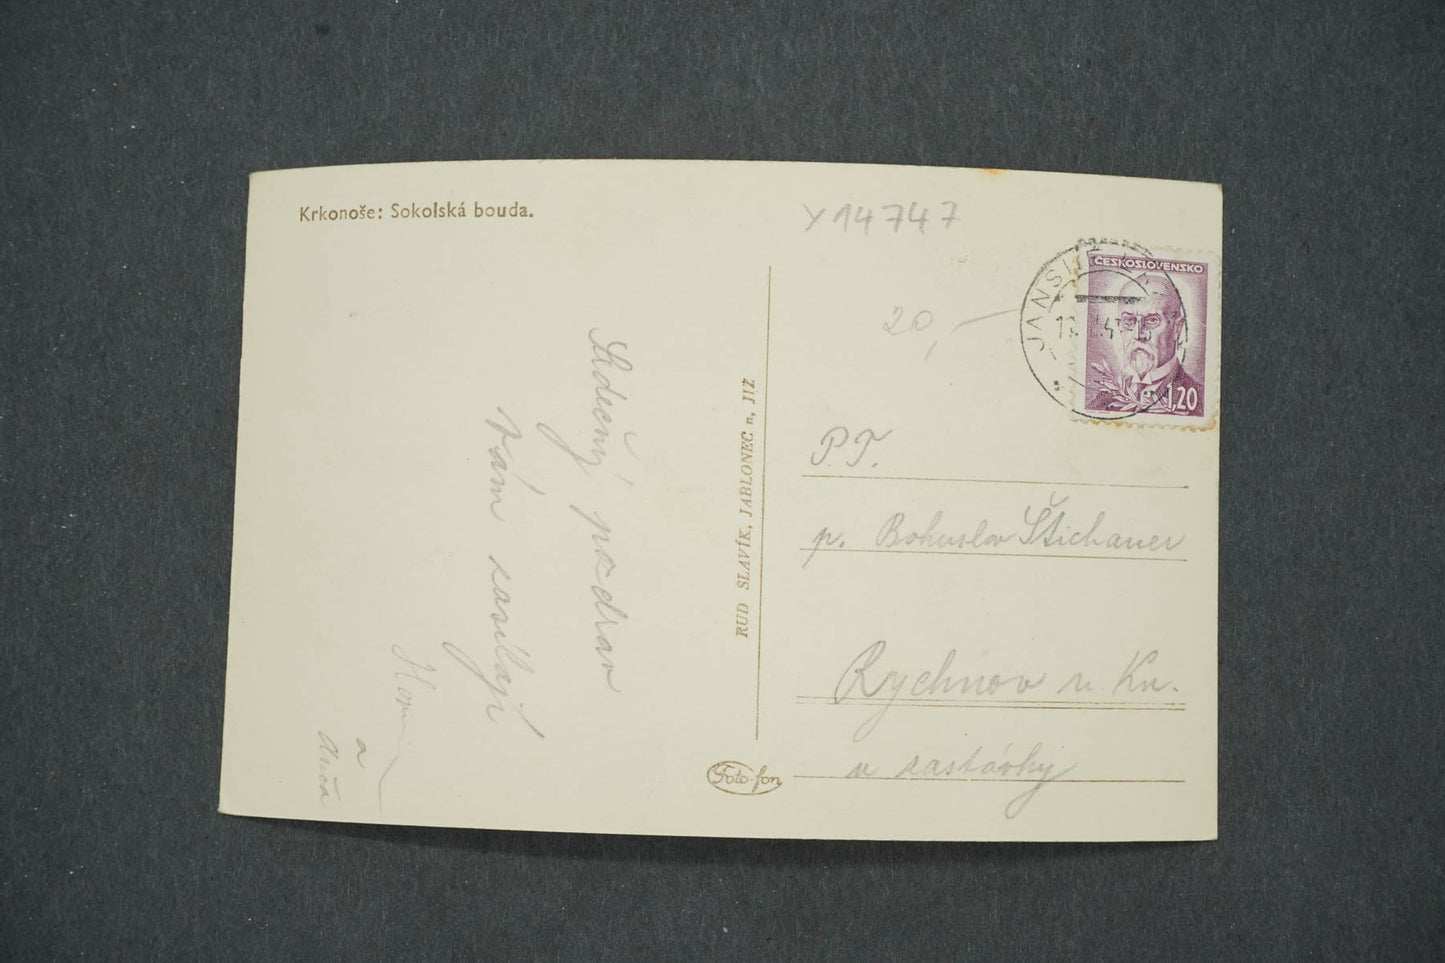 Krkonoše: Sokolská bouda.
Y 14747
20,—
ČESKOSLOVENSKO
1,20
JANSK
Srdečný pozdrav
Vám zasílají
a
RUD SLAVÍK, JABLONEC n, JIZ
Foto-fon
P.T.
p. Bohuslav Štichauer
Rychnov n. Kn.
u zastávky